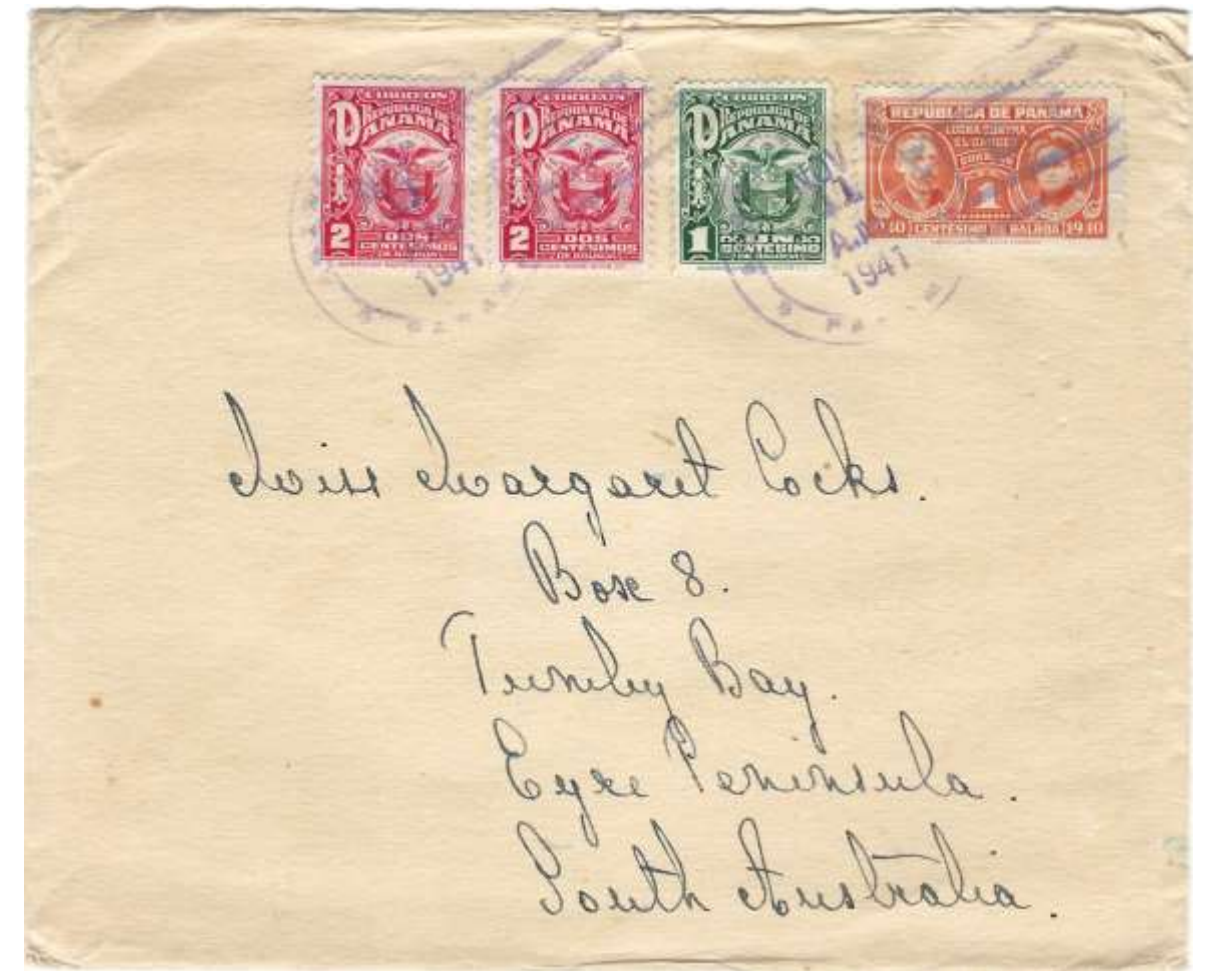 CORREOS
REPUBLICA DE
PANAMA
2 DOS
CENTESIMOS
DE BALBOA
CORREOS
REPUBLICA DE
PANAMA
2 DOS
CENTESIMOS
DE BALBOA
CORREOS
REPUBLICA DE
PANAMA
1 UN
CENTESIMO
DE BALBOA
REPUBLICA DE PANAMA
LUCHA CONTRA
EL CANCER
1
1940 CENTESIMO DE BALBOA 1940
1941
NOV
1
A.M
1941
Miss Margaret Cocks.
Box 8.
Tumby Bay.
Eyre Peninsula.
South Australia.